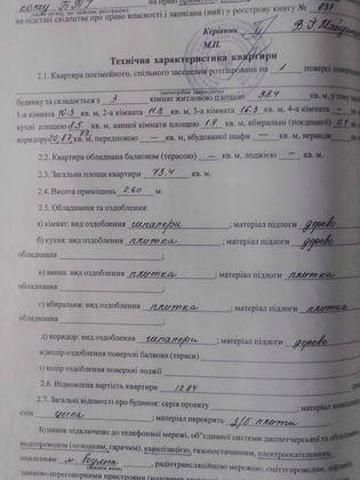 кому БТІ
на підставі свідоцтва про право власності і записана (ний) у реєстрову книгу №
Керівник
М.П.
Технічна характеристика квартири
2.1. Квартира посімейного, спільного заселення розташована на 1 поверсі
будинку та складається з 3 кімнат житловою площею 38.4 кв. м, у тому
1-а кімната 10.3 кв. м, 2-а кімната 11.8 кв. м, 3-а кімната 16.3 кв. м, 4-а кімната — м
кухні площею 8.5 кв. м, ванної кімнати площею 1.9 кв. м, вбиральні (поєднаної) 0.9
коридору кв. м, передпокою — кв. м, вбудованої шафи — кв. м, веранди
2.2. Квартира обладнана балконом (терасою) — кв. м, лоджією — кв. м.
2.3. Загальна площа квартири 73.4 кв. м.
2.4. Висота приміщень 2.60 м.
2.5. Обладнання та оздоблення:
а) кімнат: вид оздоблення шпалери ; матеріал підлоги дерево
б) кухня: вид оздоблення плитка ; матеріал підлоги дерево
обладнання ;
в) ванна: вид оздоблення плитка ; матеріал підлоги плитка
обладнання ;
г) вбиральня: вид оздоблення плитка ; матеріал підлоги плитка
обладнання ;
д) коридор: вид оздоблення шпалери ; матеріал підлоги дерево
ж) колір оздоблення поверхні балкона (тераси)
є) колір оздоблення поверхні лоджії
2.6. Відновлена вартість квартири 1284
2.7. Загальні відомості про будинок: серія проекту ; матеріал
стін цегла ; матеріал перекрить з/б плити
Будинок підключено до телефонної мережі, об"єднаної системи диспетчеризації та обладнано
водопроводом (холодним, гарячим), каналізацією, газопостачанням, електроосвітленням,
опаленням , радіотрансляційною мережею, сміттєпроводом, ліфтом,
замково-переговорними пристроями